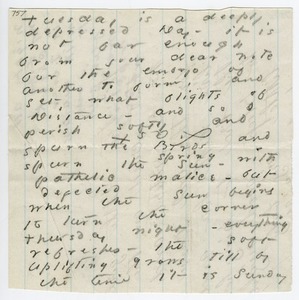 757
Tuesday is a deeply
depressed Day - it is
not far enough
from your dear note
for the embryo of
another to form, and
yet what flights of
Distance - and so I
perish softly and
spurn the Birds and
spurn the Spring Sun - with
pathetic malice - but
dejected
when the Sun begins
to turn the corner
Thursday night - everything
refreshes - the soft
uplifting grows till by
the time it is Sunday